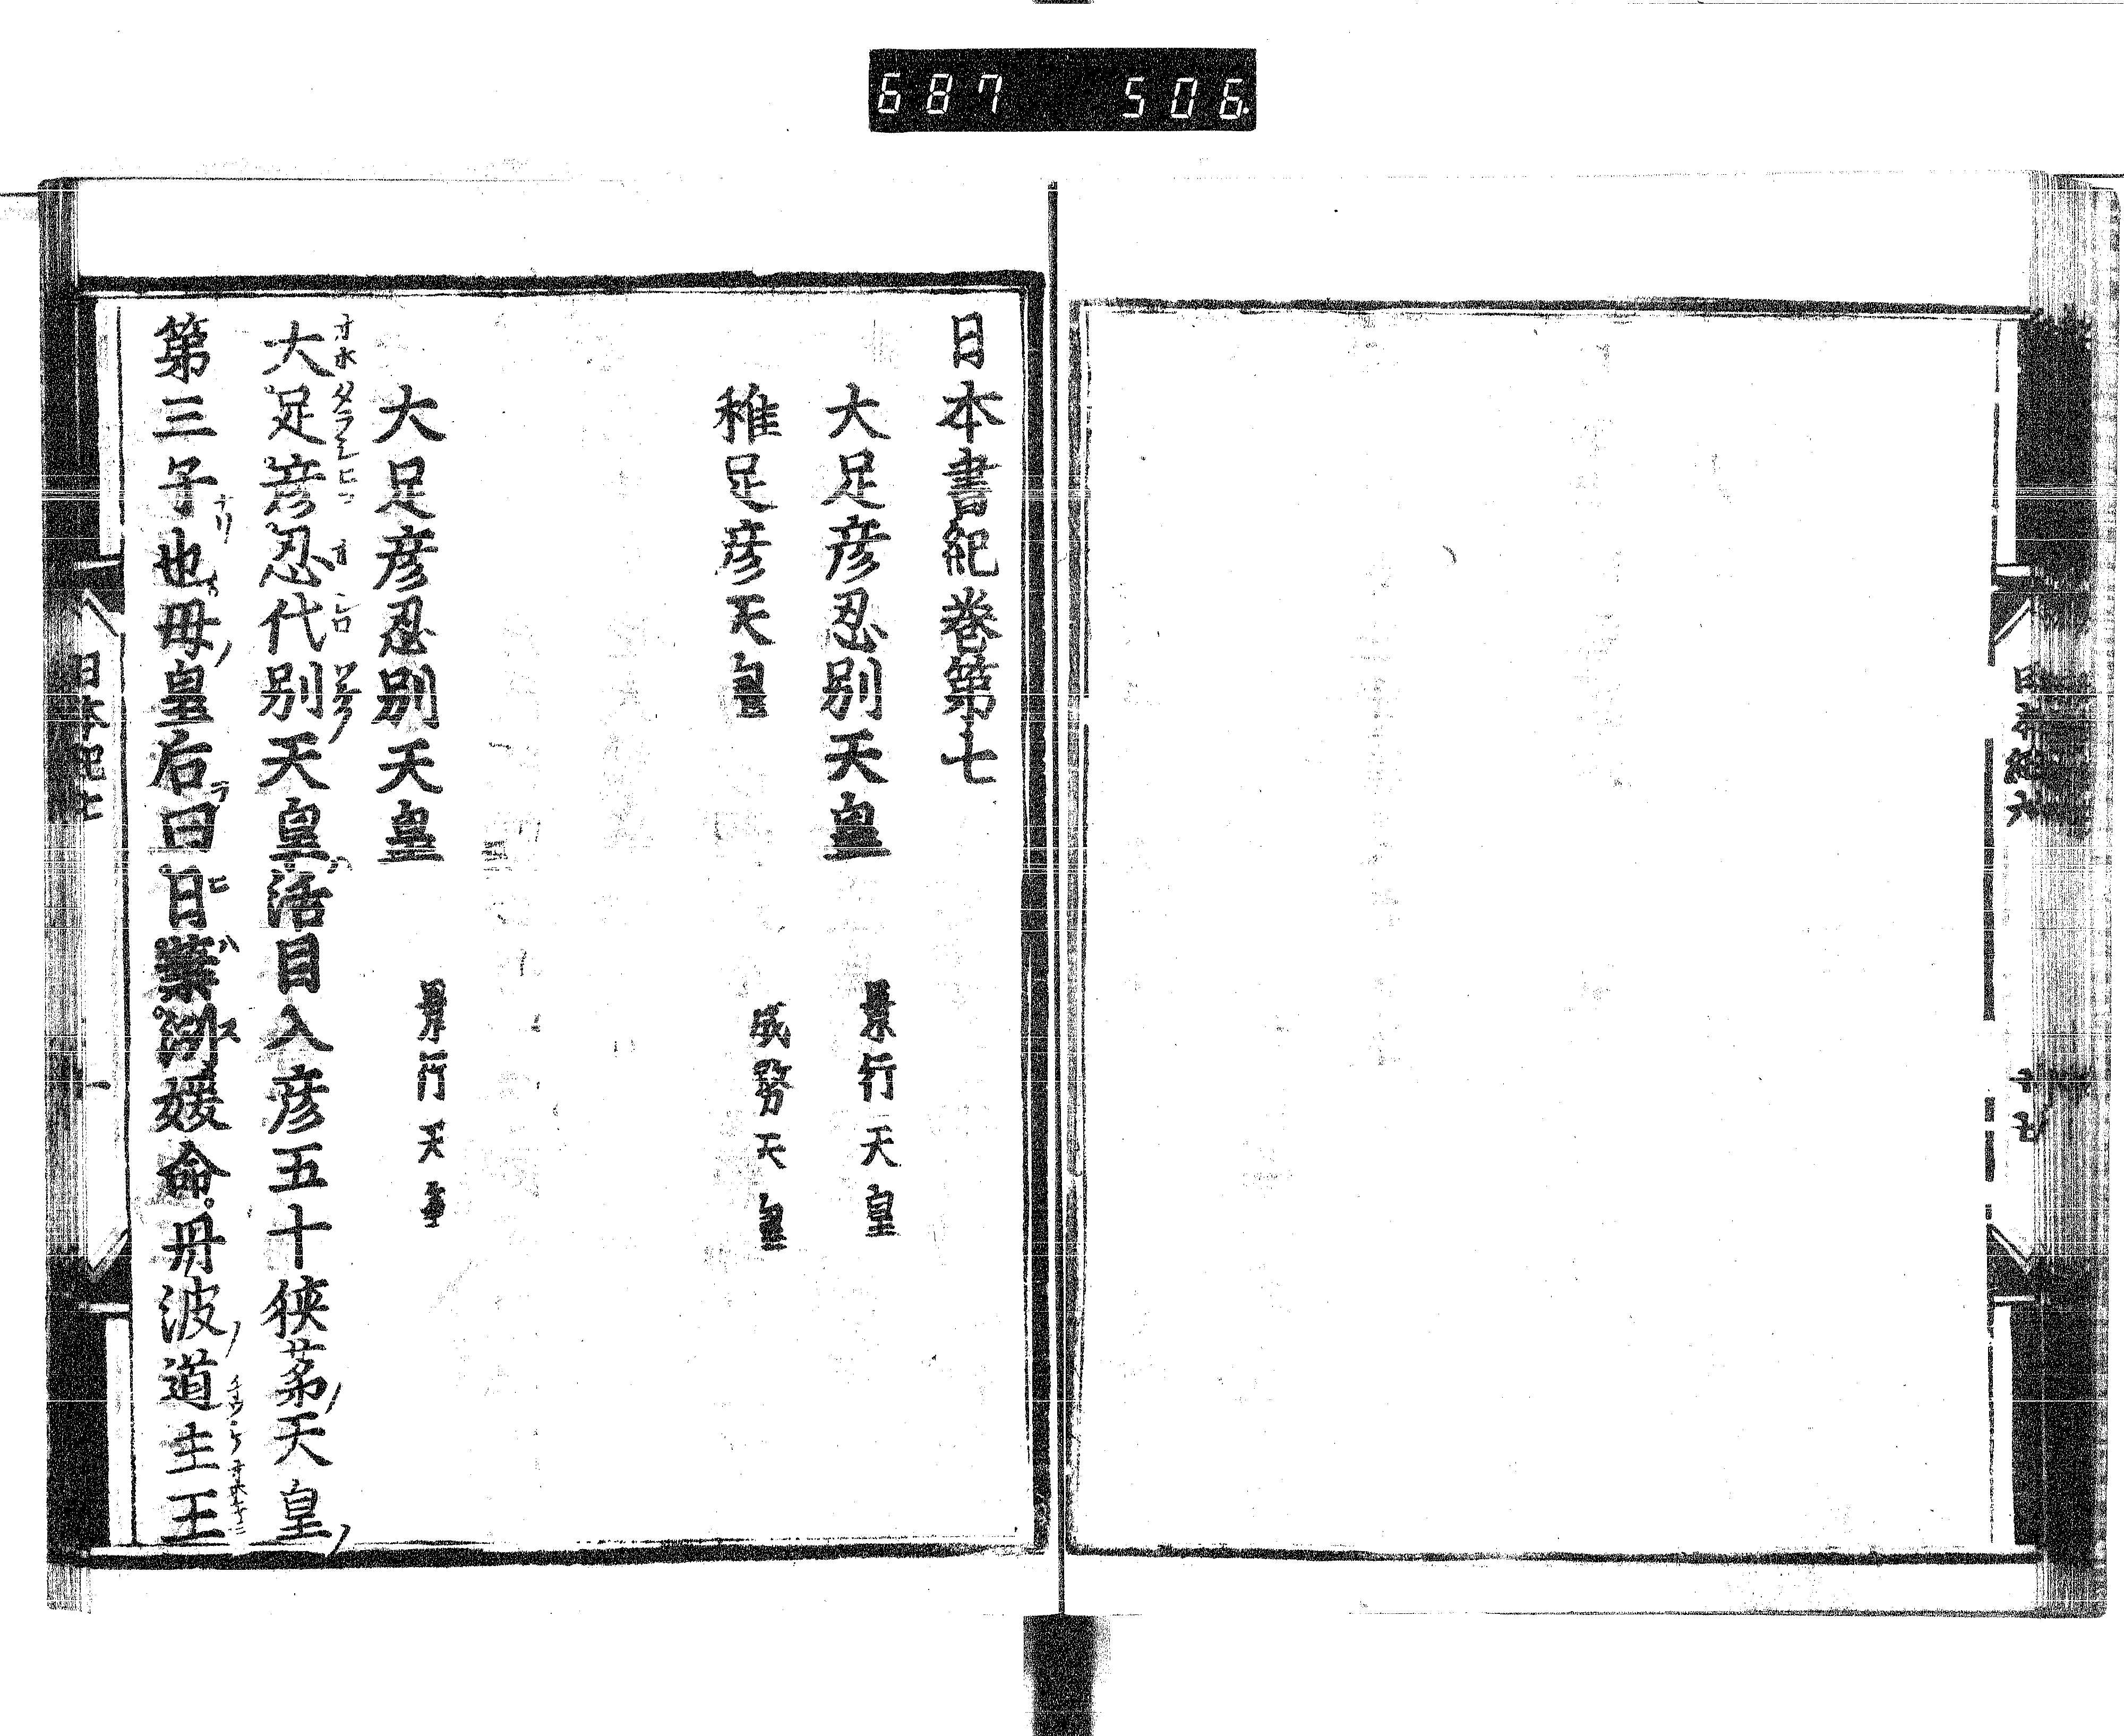 687 506
日本書紀巻第七
大足彦忍別天皇 景行天皇
稚足彦天皇 成務天皇
大足彦忍別天皇 景行天皇
大足彦忍代別天皇活目入彦五十狭茅天皇
第三子也母皇后曰日葉洲媛命丹波道主王
日本紀七 一
日本紀六